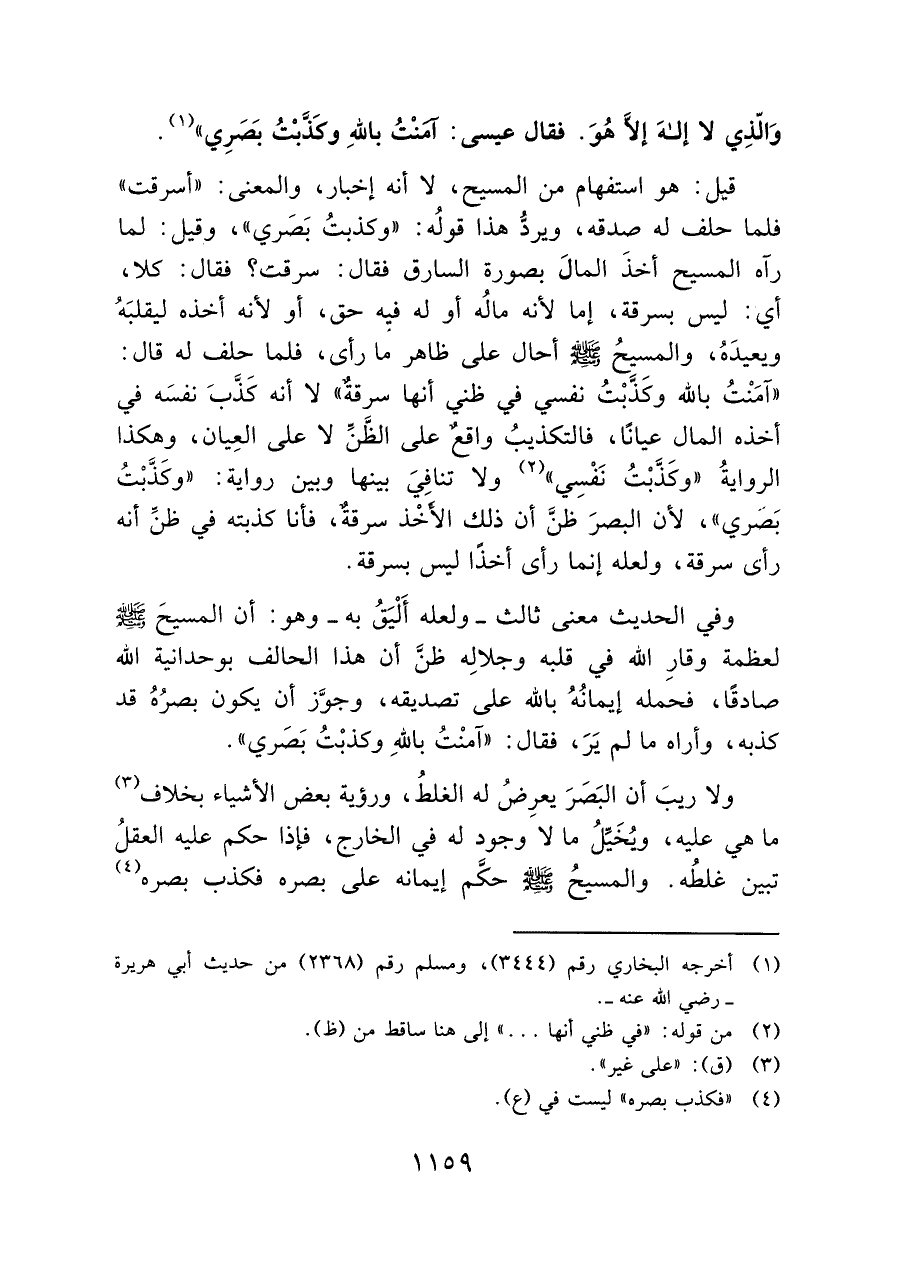 وَالّذِي لا إلـٰهَ إلاَّ هُوَ. فقال عيسى: آمَنْتُ باللهِ وكَذَّبْتُ بَصَرِي»(١).
قيل: هو استفهام من المسيح، لا أنه إخبار، والمعنى: «أسرقت»
فلما حلف له صدقه، ويردُّ هذا قولُه: «وكذبتُ بَصَري»، وقيل: لما
رآه المسيح أخذَ المالَ بصورة السارق فقال: سرقت؟ فقال: كلا،
أي: ليس بسرقة، إما لأنه مالُه أو له فيه حق، أو لأنه أخذه ليقلبَهُ
ويعيدَهُ، والمسيحُ ﷺ أحال على ظاهر ما رأى، فلما حلف له قال:
«آمَنْتُ بالله وكَذَّبْتُ نفسي في ظني أنها سرقةٌ» لا أنه كَذَّبَ نفسَه في
أخذه المال عيانًا، فالتكذيبُ واقعٌ على الظَّنِّ لا على العِيان، وهكذا
الروايةُ «وكَذَّبْتُ نَفْسِي»(٢) ولا تنافِيَ بينها وبين رواية: «وكَذَّبْتُ
بَصَري»، لأن البصرَ ظنَّ أن ذلك الأَخْذ سرقةٌ، فأنا كذبته في ظنِّ أنه
رأى سرقة، ولعله إنما رأى أخذًا ليس بسرقة.
وفي الحديث معنى ثالث ـ ولعله أَلْيَقُ به ـ وهو: أن المسيحَ ﷺ
لعظمة وقارِ الله في قلبه وجلالِه ظنَّ أن هذا الحالف بوحدانية الله
صادقًا، فحمله إيمانُهُ بالله على تصديقه، وجوَّز أن يكون بصرُهُ قد
كذبه، وأراه ما لم يَرَ، فقال: «آمنْتُ باللهِ وكذبْتُ بَصَري».
ولا ريبَ أن البَصَرَ يعرِضُ له الغلطُ، ورؤية بعض الأشياء بخلاف(٣)
ما هي عليه، ويُخَيِّلُ ما لا وجود له في الخارج، فإذا حكم عليه العقلُ
تبين غلطُه. والمسيحُ ﷺ حكَّم إيمانه على بصره فكذب بصره(٤)
(١) أخرجه البخاري رقم (٣٤٤٤)، ومسلم رقم (٢٣٦٨) من حديث أبي هريرة
ـ رضي الله عنه ـ.
(٢) من قوله: «في ظني أنها ...» إلى هنا ساقط من (ظ).
(٣) (ق): «على غير».
(٤) «فكذب بصره» ليست في (ع).
١١٥٩